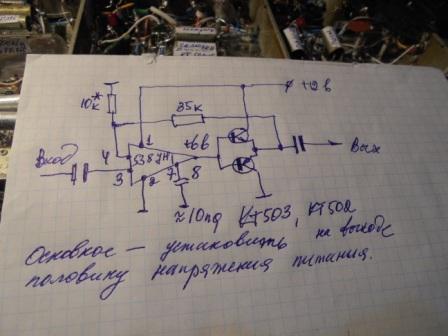 +12 в
10к*
35к
+6в
1
Вход
4
538УН1
Вых
3
2
7
8
≈10пф КТ503, КТ502
Основное — установить на выходе
половину напряжения питания.